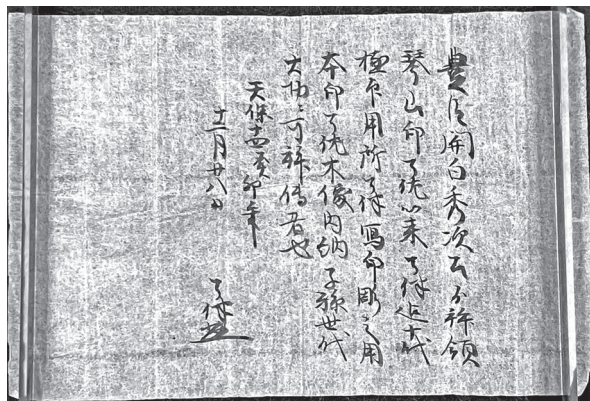 豊臣関白秀次公ゟ拝領
琴山印了佐以来了伴迄十代
極印用所了伴写印彫之用
本印了佐木像内納子孫世代
大切ニ可拝傳者也
天保十四癸卯年
十一月廿八日
了伴